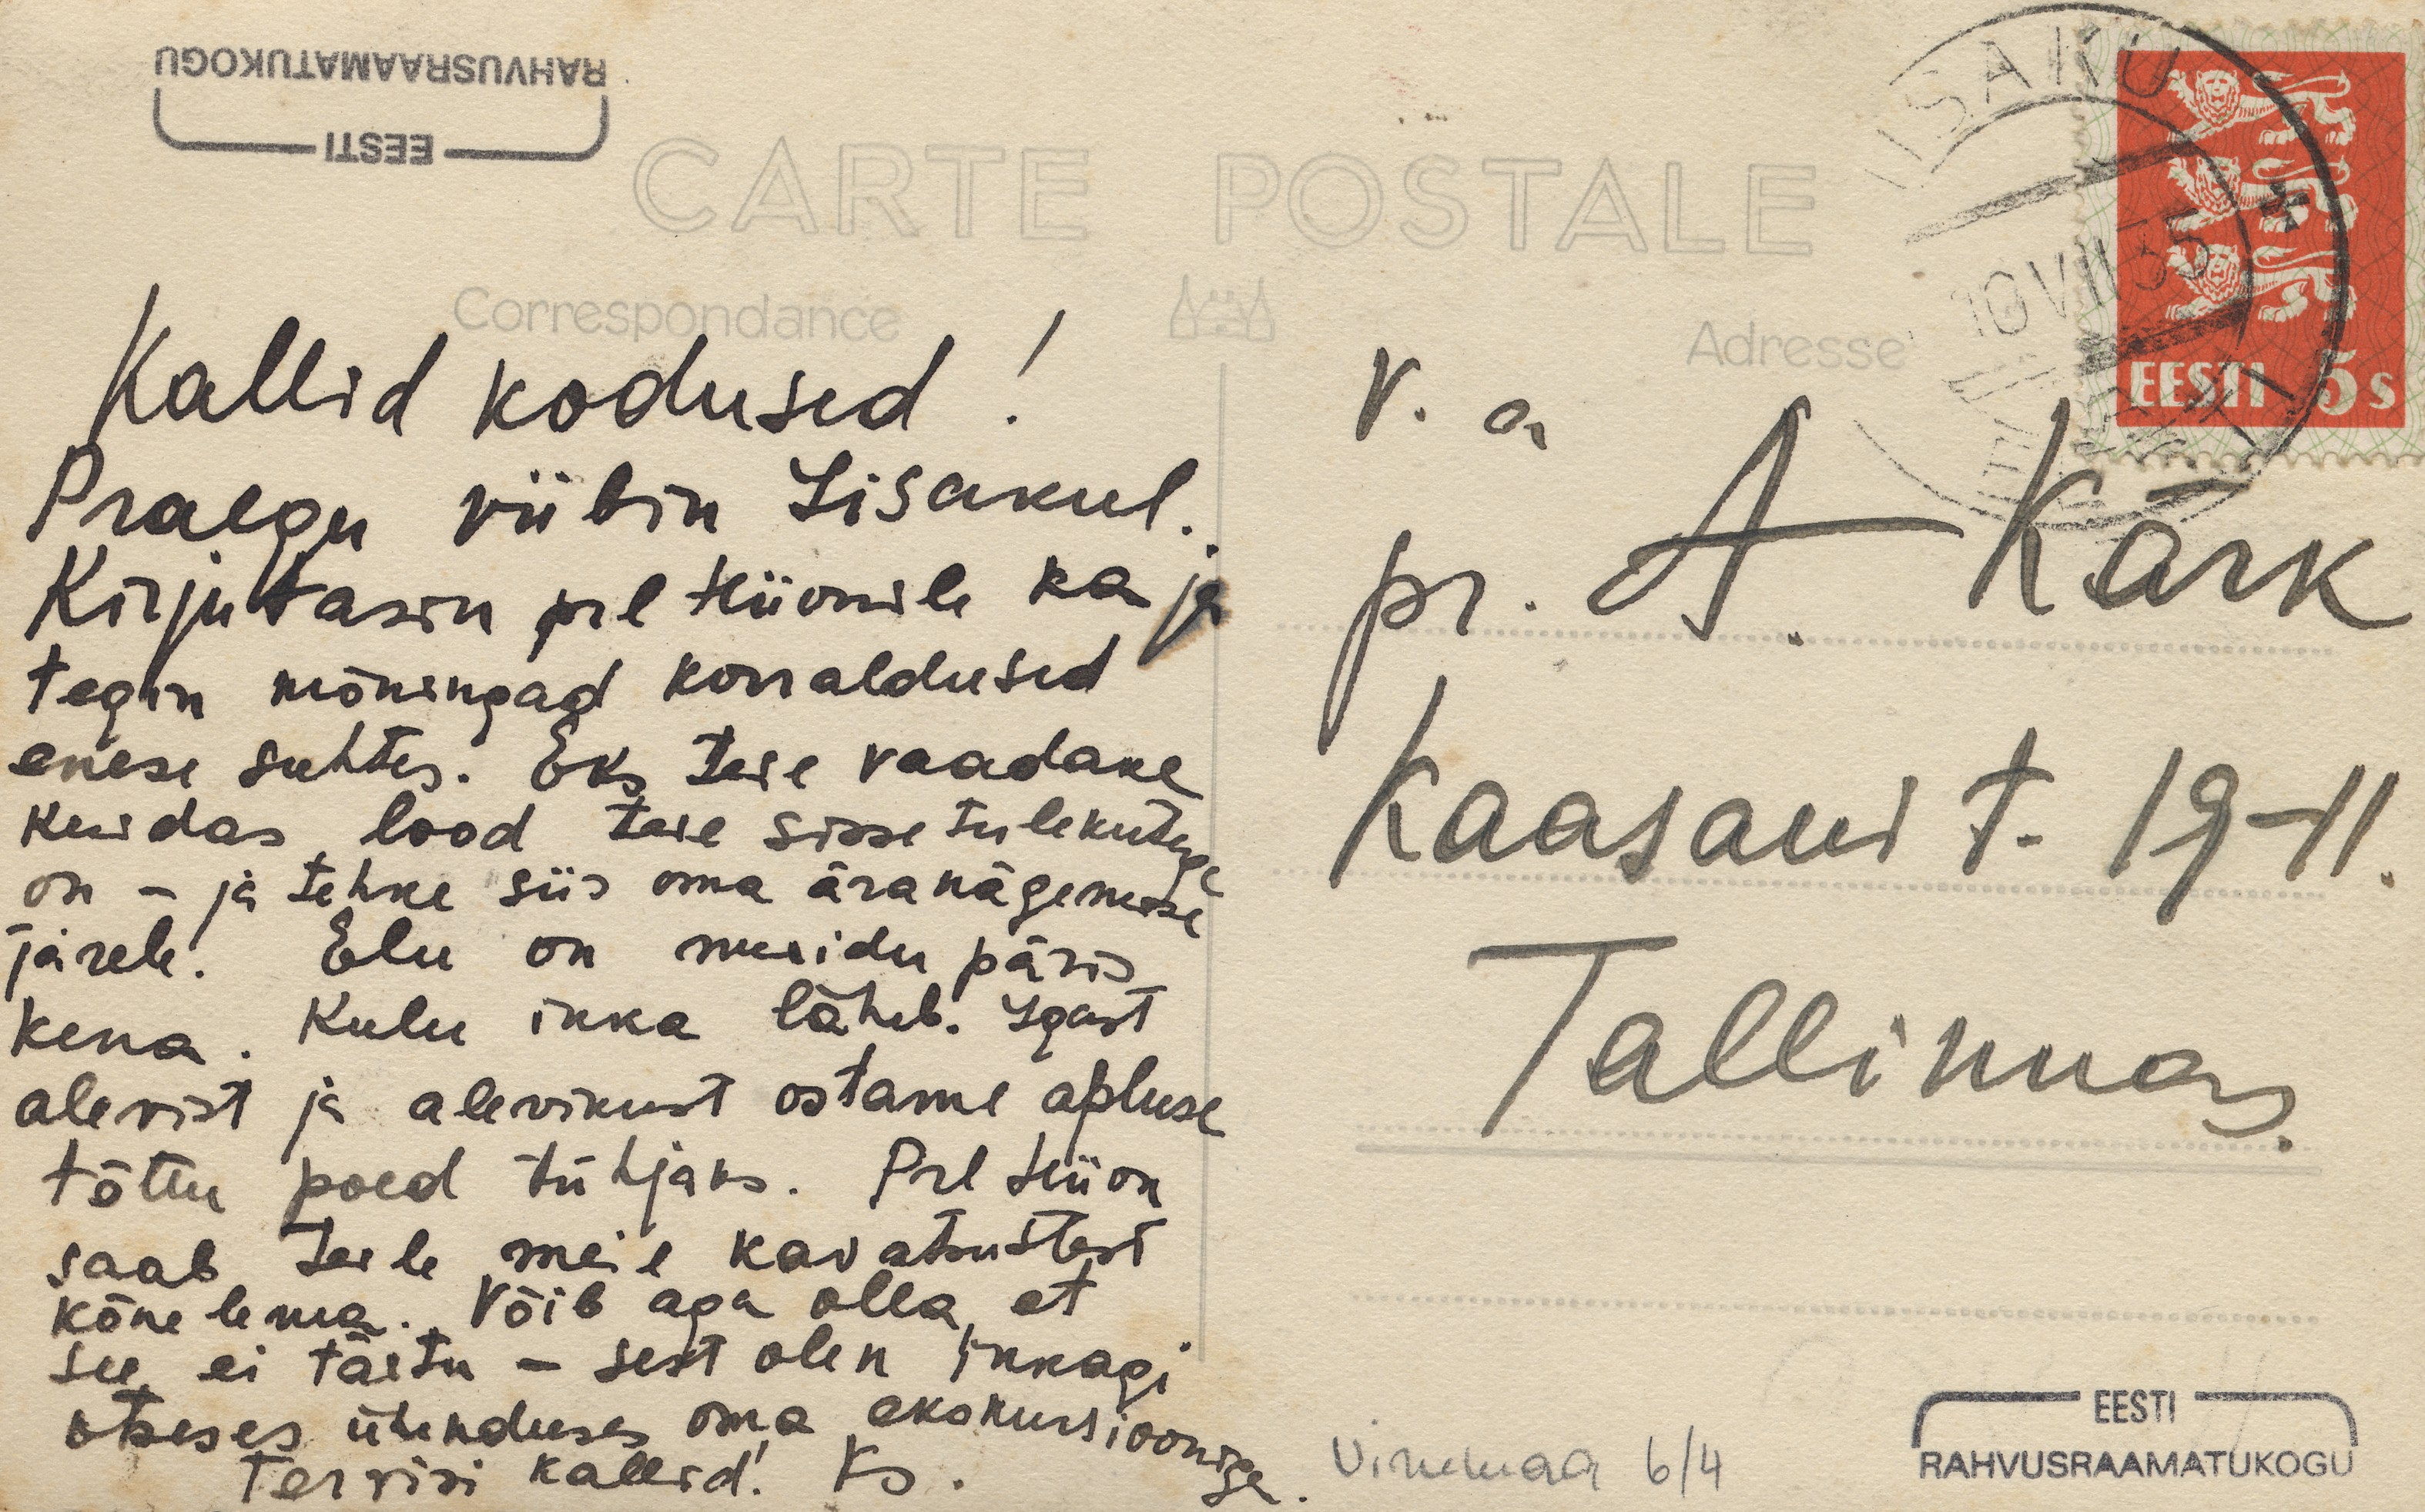 EESTI
RAHVUSRAAMATUKOGU
CARTE POSTALE
Correspondance
Adresse
IISAKU
10 VII 35
EESTI
EESTI 5 s
Kallid kodused!
Praegu viibin Iisakul.
Kirjutasin prl Hiionile ka ja
tegin mõningad korraldused
enese suhtes. Eks teie vaadake
kuidas lood teie sissetulekutega
on – ja tehke siis oma äranägemise
järele. Elu on muidu päris
kena. Kulu ikka läheb. Igast
alevist ja alevikust ostame apluse
tõttu poed tühjaks. Prl Hiion
saab teile meie kavatsustest
kõnelema. Võib aga olla, et
see ei täitu – sest olen ikkagi
otseses ühenduses oma ekskursiooniga.
Tervisi kallid! Ks.
V. a
pr. A. Kärk
Kaasani t. 19–11.
Tallinnas.
Virumaa 6/4
EESTI
RAHVUSRAAMATUKOGU